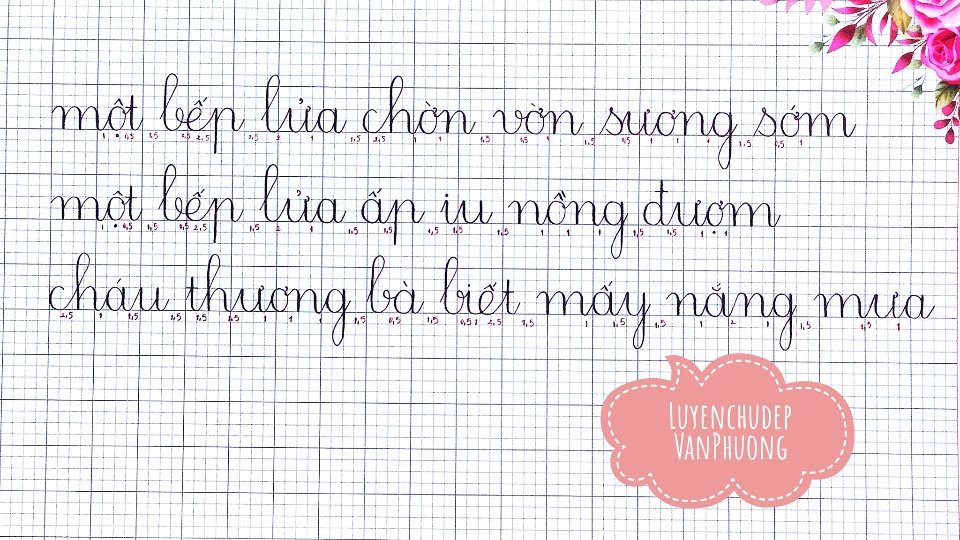 một bếp lửa chờn vờn sương sớm
một bếp lửa ấp iu nồng đượm
cháu thương bà biết mấy nắng mưa
LUYENCHUDEP
VANPHUONG